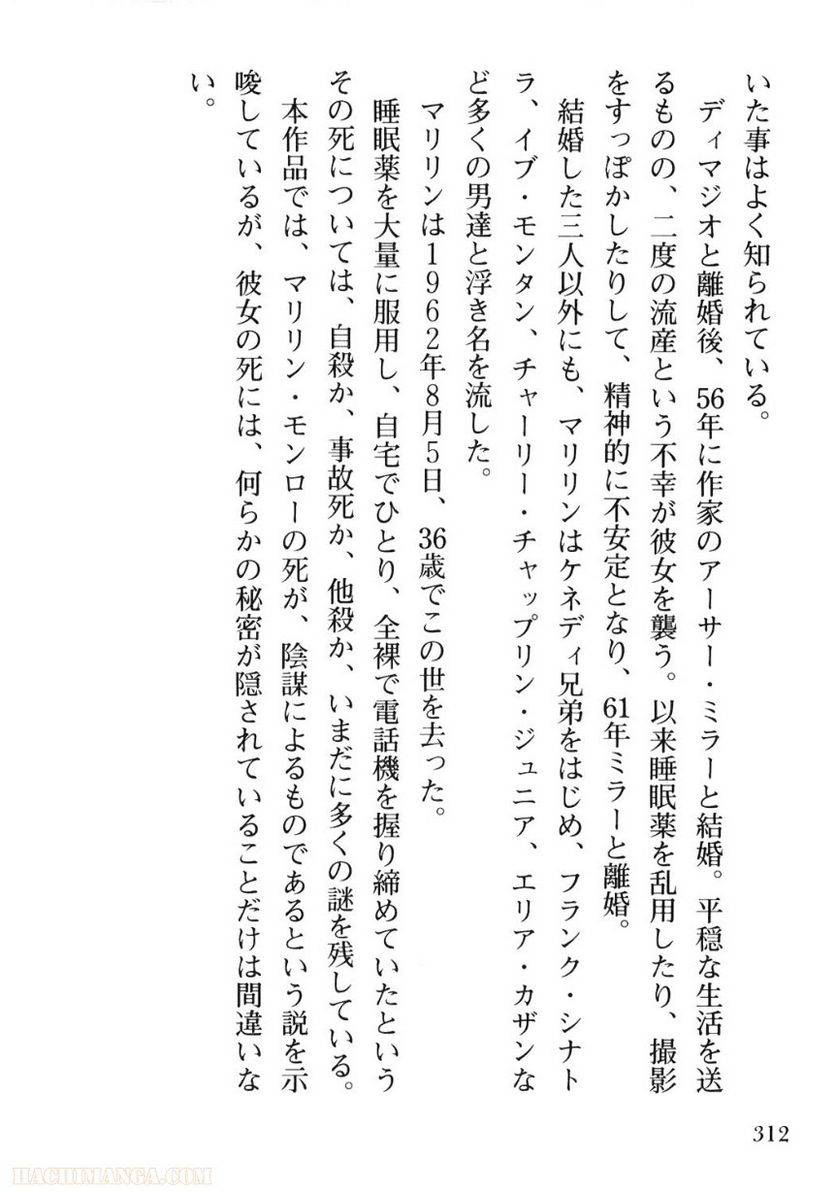 いた事はよく知られている。
ディマジオと離婚後、56年に作家のアーサー・ミラーと結婚。平穏な生活を送
るものの、二度の流産という不幸が彼女を襲う。以来睡眠薬を乱用したり、撮影
をすっぽかしたりして、精神的に不安定となり、61年ミラーと離婚。
結婚した三人以外にも、マリリンはケネディ兄弟をはじめ、フランク・シナト
ラ、イブ・モンタン、チャーリー・チャップリン・ジュニア、エリア・カザンな
ど多くの男達と浮き名を流した。
マリリンは1962年8月5日、36歳でこの世を去った。
睡眠薬を大量に服用し、自宅でひとり、全裸で電話機を握り締めていたという
その死については、自殺か、事故死か、他殺か、いまだに多くの謎を残している。
本作品では、マリリン・モンローの死が、陰謀によるものであるという説を示
唆しているが、彼女の死には、何らかの秘密が隠されていることだけは間違いな
い。
312
HACHIMANGA.COM